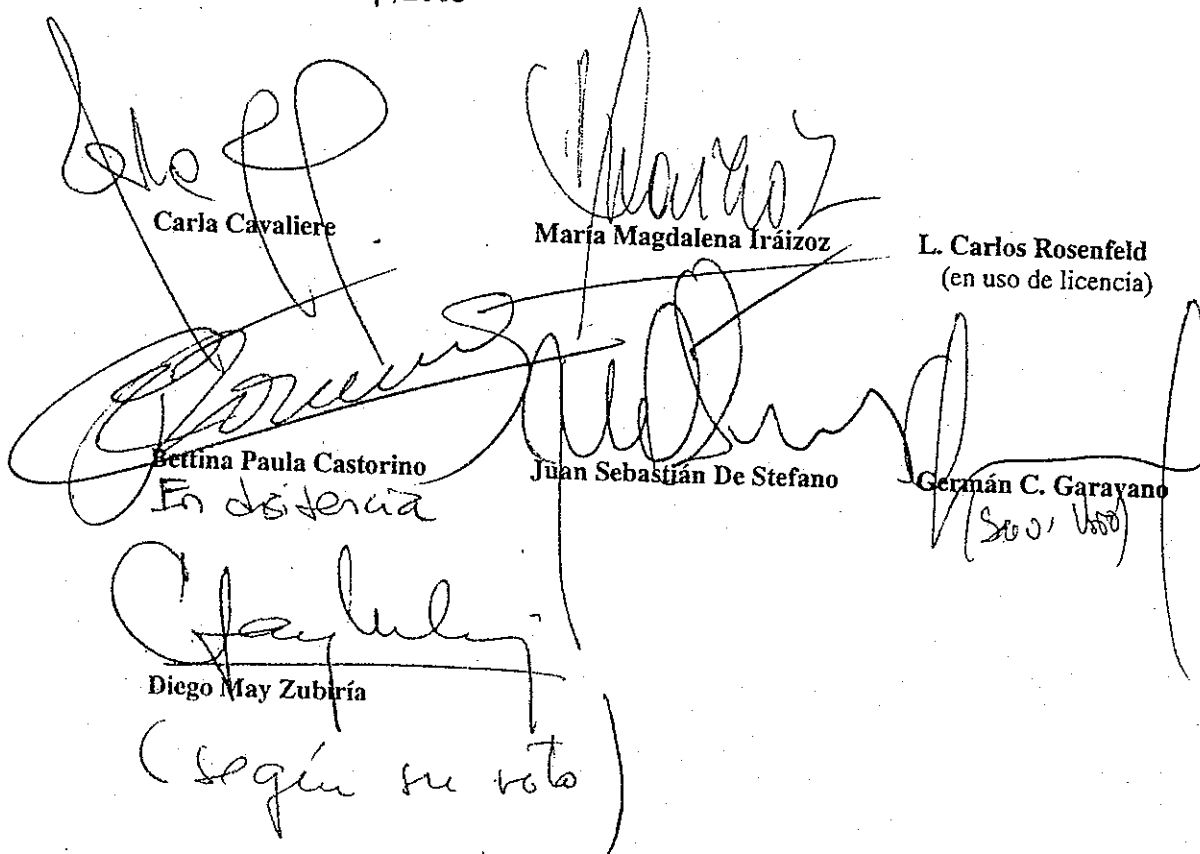 Carla Cavaliere
María Magdalena Iráizoz
L. Carlos Rosenfeld
(en uso de licencia)
Bettina Paula Castorino
En disidencia
Juan Sebastián De Stefano
Germán C. Garavano
Diego May Zubiría
(según su voto)